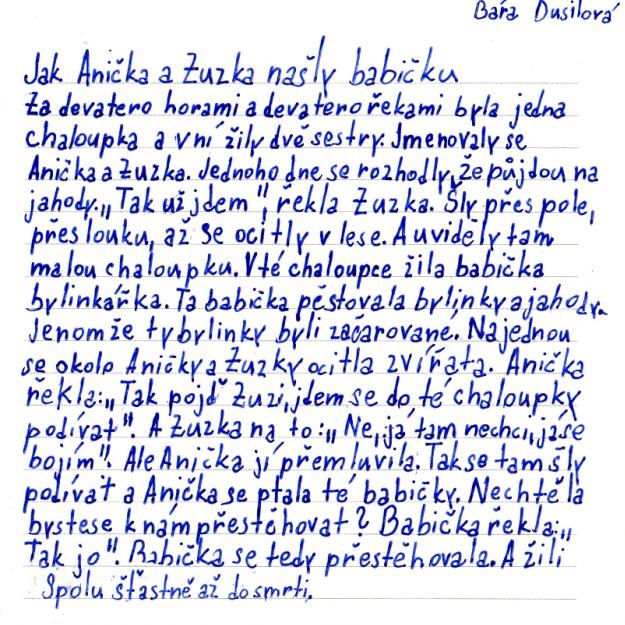 Bára Dusilová
Jak Anička a Zuzka našly babičku
Za devatero horami a devatero řekami byla jedna
chaloupka a v ní žily dvě sestry. Jmenovaly se
Anička a Zuzka. Jednoho dne se rozhodly, že půjdou na
jahody. „Tak už jdem", řekla Zuzka. Šly přes pole,
přes louku, až se ocitly v lese. A uviděly tam
malou chaloupku. V té chaloupce žila babička
bylinkářka. Ta babička pěstovala bylinky a jahody.
Jenomže ty bylinky byli začarované. Najednou
se okolo Aničky a Zuzky ocitla zvířata. Anička
řekla: „Tak pojď Zuzi, jdem se do té chaloupky
podívat". A Zuzka na to: „Ne, já tam nechci, já se
bojím". Ale Anička jí přemluvila. Tak se tam šly
podívat a Anička se ptala té babičky. Nechtěla
bystese k nám přestěhovat? Babička řekla: „
Tak jo". Babička se tedy přestěhovala. A žili
Spolu šťastně až do smrti.